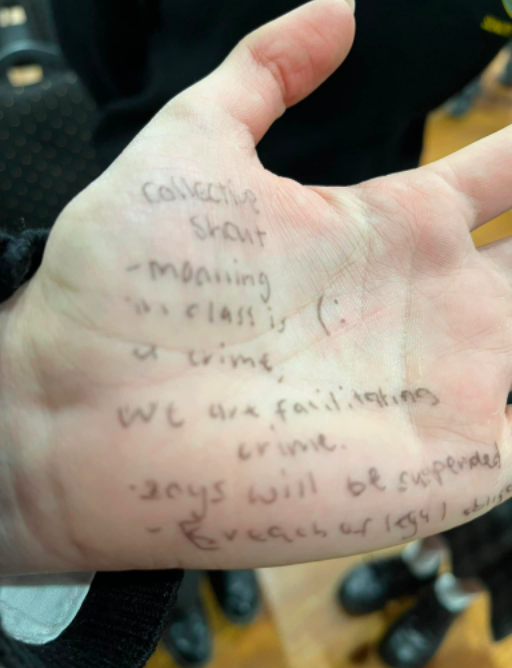 collective
Shout
- moaning
in class is (:
a crime.
We are facilitating
crime.
will be suspended
- Breach of legal